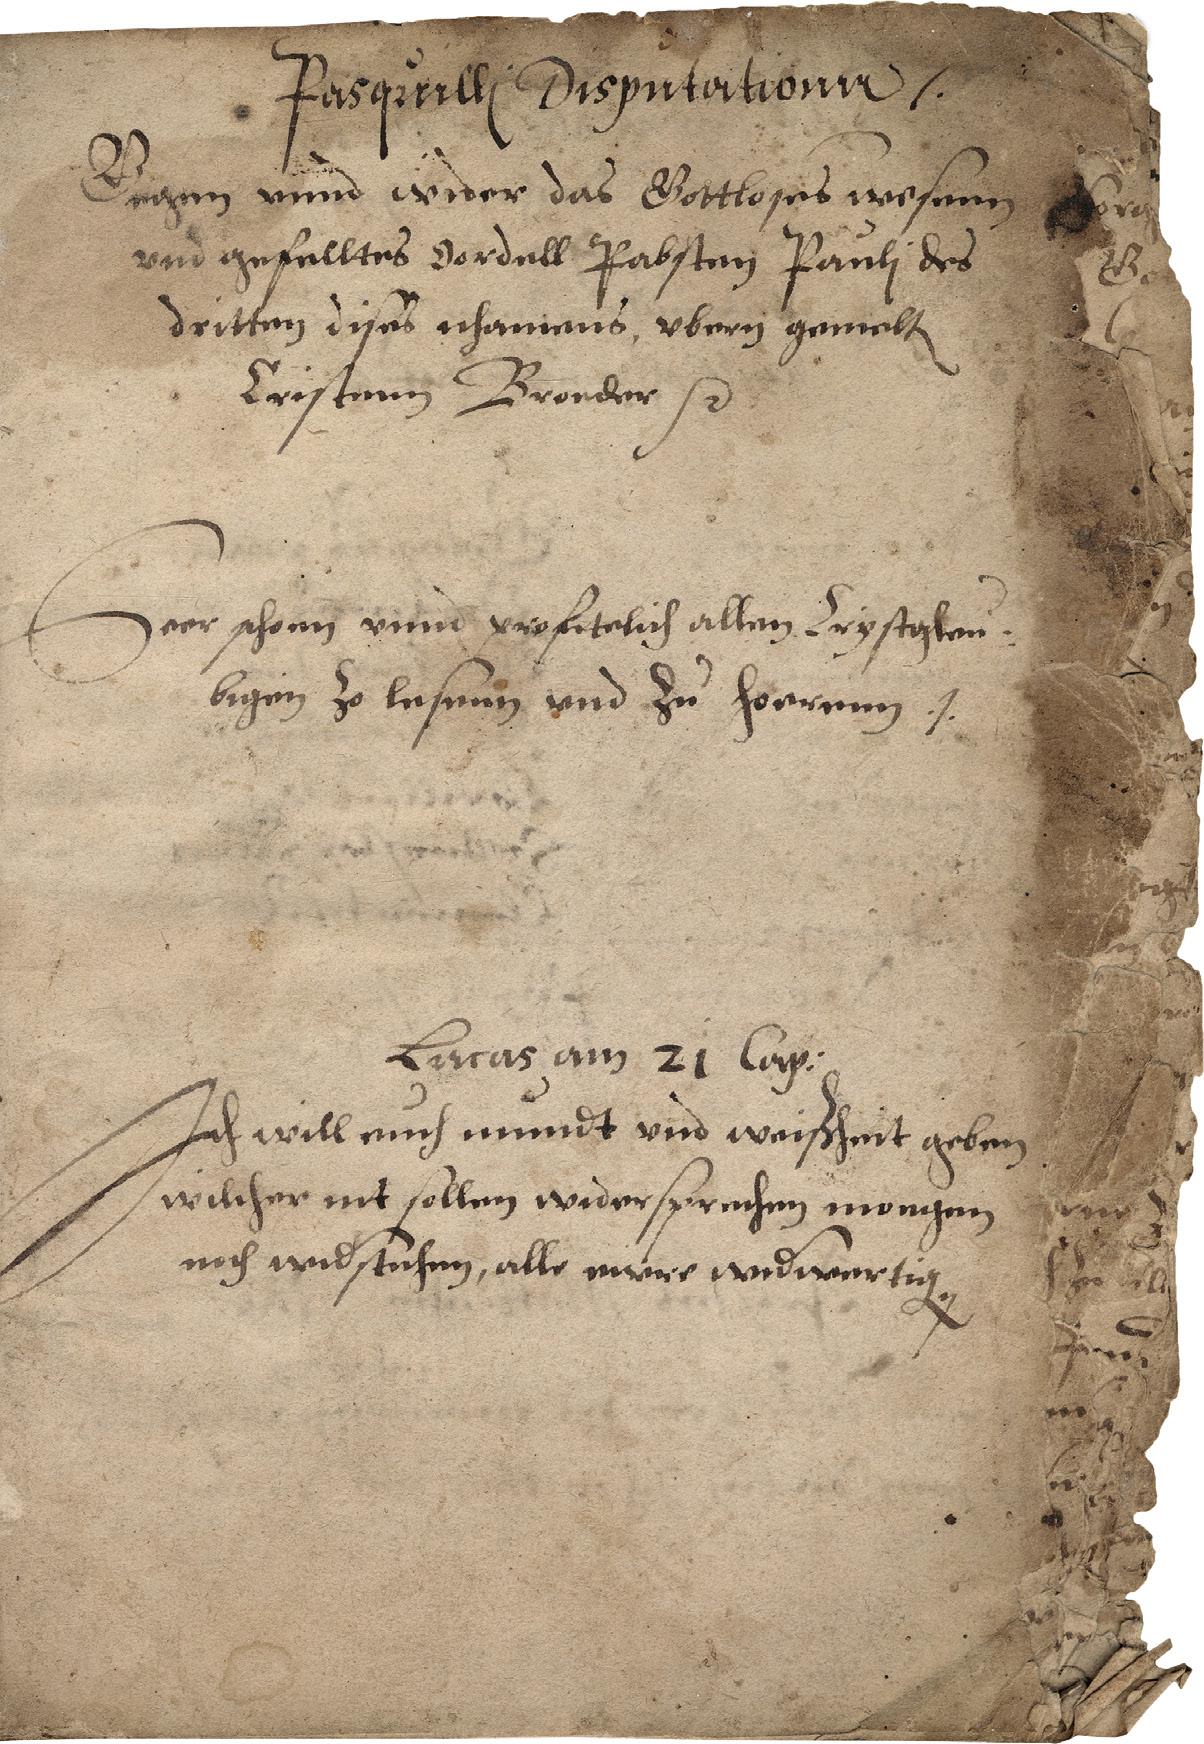 Pasquilli Disputationn /.
Gegen vnnd wider das Gottloses wesenn
vnd gefelltes Oordell Pabsten Pauli des
dritten dises nhamens, vbern gemelt
Cristenn Broeder
Seer schoen vnnd profitelich allen Crystgleu:
bigen zo lesenn vnd zu hoerenn ./.
Lucas am 21 Cap:
Ich will euch mundt vnd weißheit geben
wilcher nit sollen widersprechen moengen
noch widstehen, alle ewre widwertig